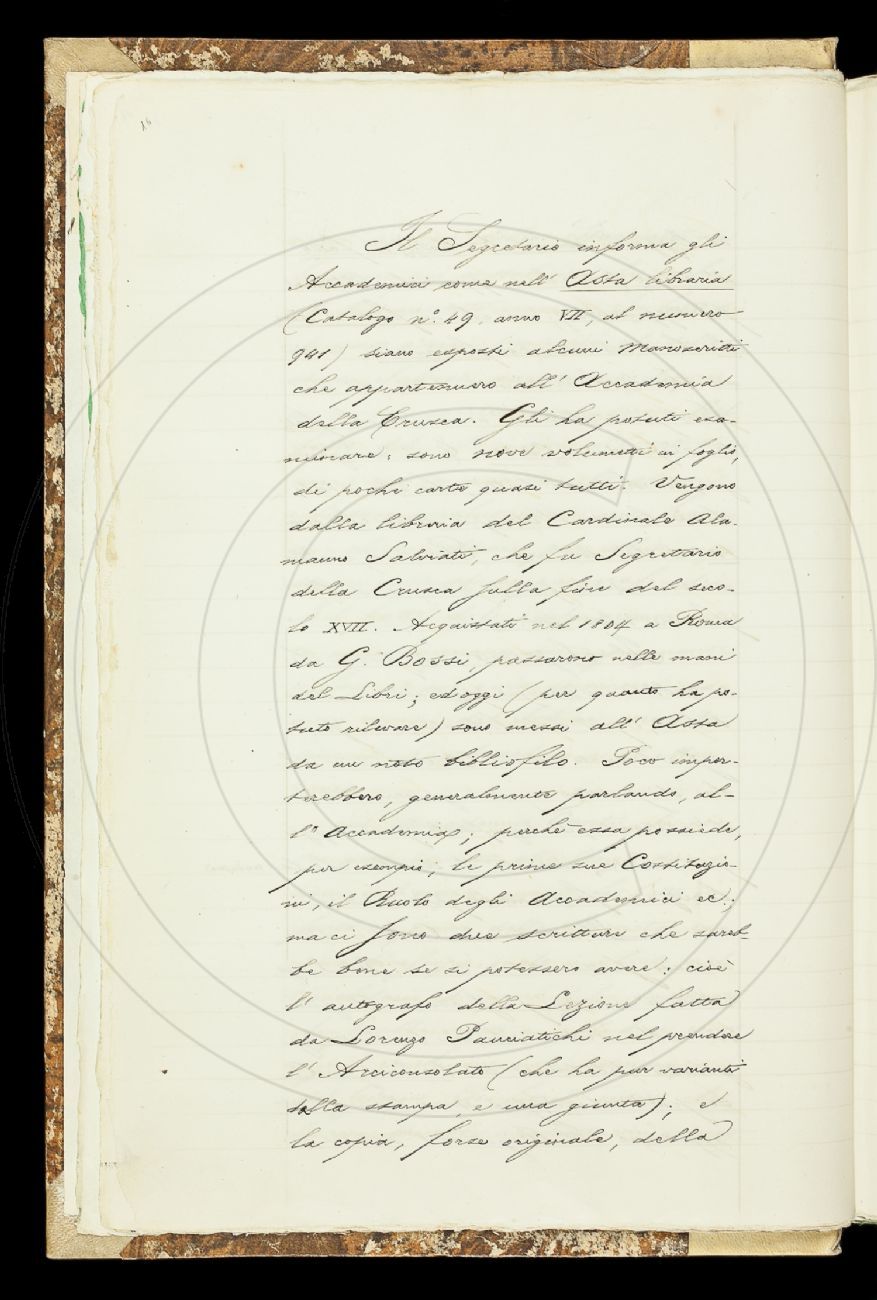 16
Il Segretario informa gli
Accademici come nell' Asta libraria
(Catalogo n.º 49, anno VII, al numero
941) siano esposti alcuni Manoscritti
che appartennero all' Accademia
della Crusca. Gli ha potuti esa-
minare: sono nove volumetti in foglio,
di pochi carte quasi tutti. Vengono
dalla libreria del Cardinale Ala-
manno Salviati, che fu Segretario
della Crusca sulla fine del seco-
lo XVII. Acquistati nel 1804 a Roma
da G. Bossi, passarono nelle mani
del Libri; ed oggi (per quanto ha po-
tuto rilevare) sono messi all' Asta
da un noto bibliofilo. Poco impor-
terebbero, generalmente parlando, al-
l' Accademia; perchè essa possiede,
per esempio, le prime sue Costituzio-
ni, il Ruolo degli Accademici ec.;
ma ci sono due scritture che sareb-
be bene se si potessero avere: cioè
l' autografo della Lezione fatta
da Lorenzo Panciatichi nel prendere
l' Arciconsolato (che ha pur varianti
dalla stampa, e una giunta); e
la copia, forse originale, della